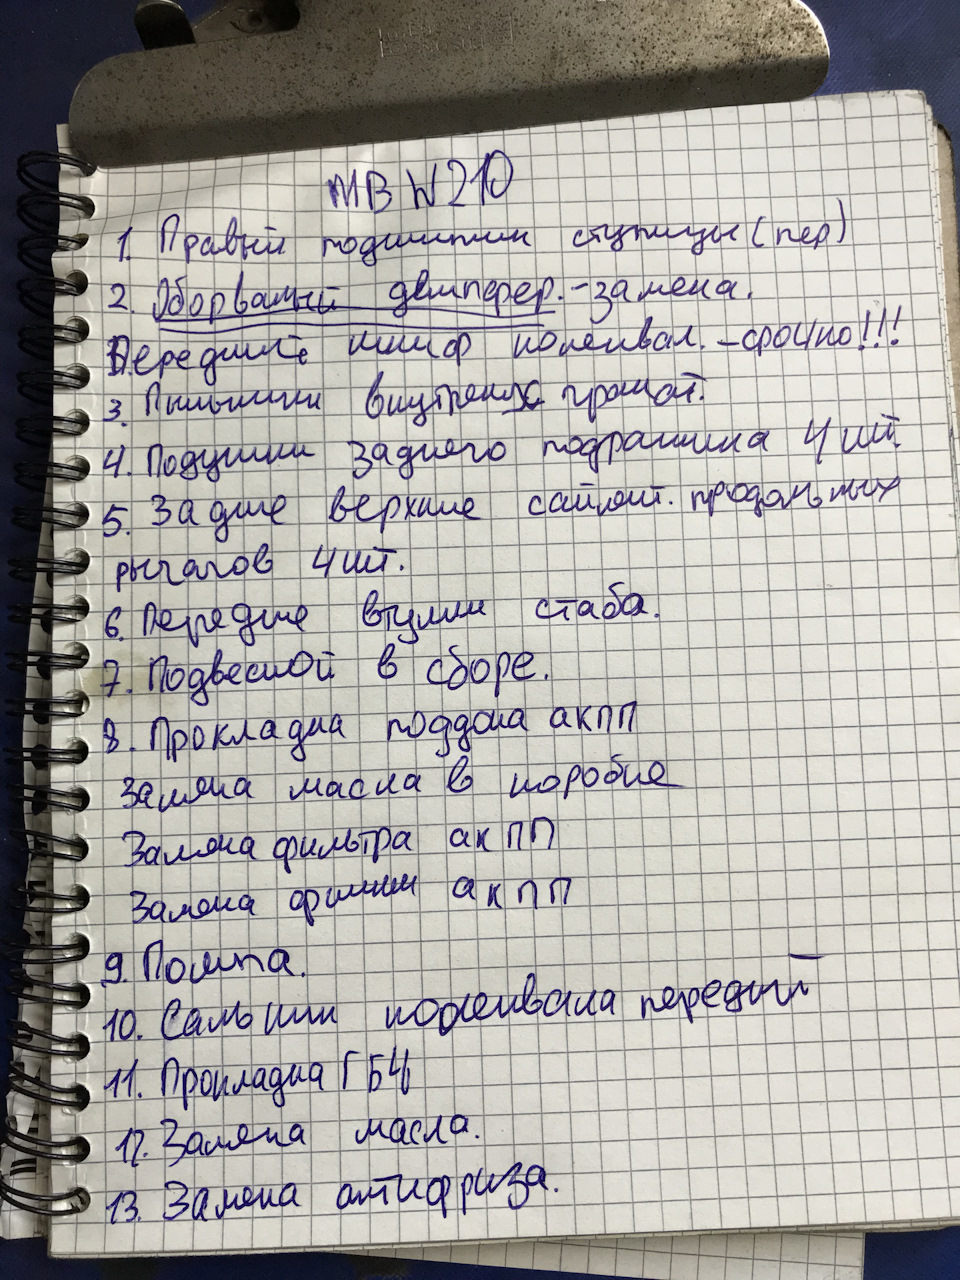 МВ W210
1. Правый подшипник ступицы (пер)
2. Оборванный демпфер. - замена.
Передний шкиф коленвал. - срочно!!!
3. Пыльники внутренних гранат.
4. Подушки заднего подрамника 4 шт.
5. Задние верхние сайлент. продольных
рычагов 4 шт.
6. Передние втулки стаба.
7. Подвесной в сборе.
8. Прокладка поддона акпп
Замена масла в коробке
Замена фильтра акпп
Замена фишки акпп
9. Помпа.
10. Сальник коленвала передний
11. Прокладка ГБЦ
12. Замена масла.
13. Замена антифриза.